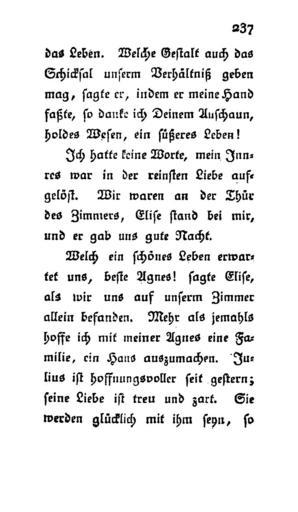 237
das Leben. Welche Gestalt auch das
Schicksal unserm Verhältniß geben
mag, sagte er, indem er meine Hand
faßte, so danke ich Deinem Anschaun,
holdes Wesen, ein süßeres Leben!
Ich hatte keine Worte, mein Inn-
res war in der reinsten Liebe auf-
gelöst. Wir waren an der Thür
des Zimmers, Elise stand bei mir,
und er gab uns gute Nacht.
Welch ein schönes Leben erwar-
tet uns, beste Agnes! sagte Elise,
als wir uns auf unserm Zimmer
allein befanden. Mehr als jemahls
hoffe ich mit meiner Agnes eine Fa-
milie, ein Haus auszumachen. Ju-
lius ist hoffnungsvoller seit gestern;
seine Liebe ist treu und zart. Sie
werden glücklich mit ihm seyn, so